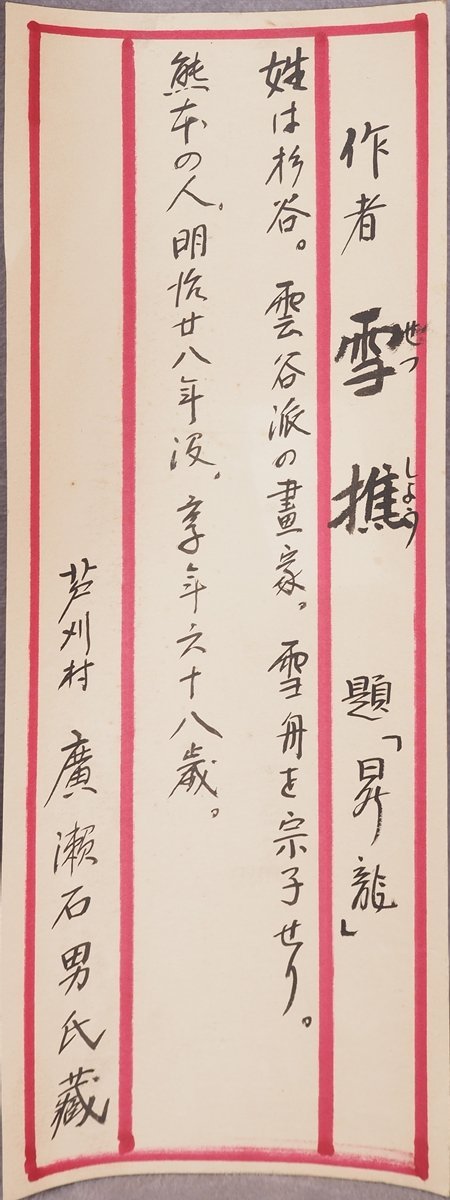 作者 雪樵 題「昇龍」
せつ しよう
姓は杉谷。雲谷派の畫家。雪舟を宗子せり。
熊本の人。明治廿八年没。享年六十八歳。
芦刈村 廣瀬石男氏藏